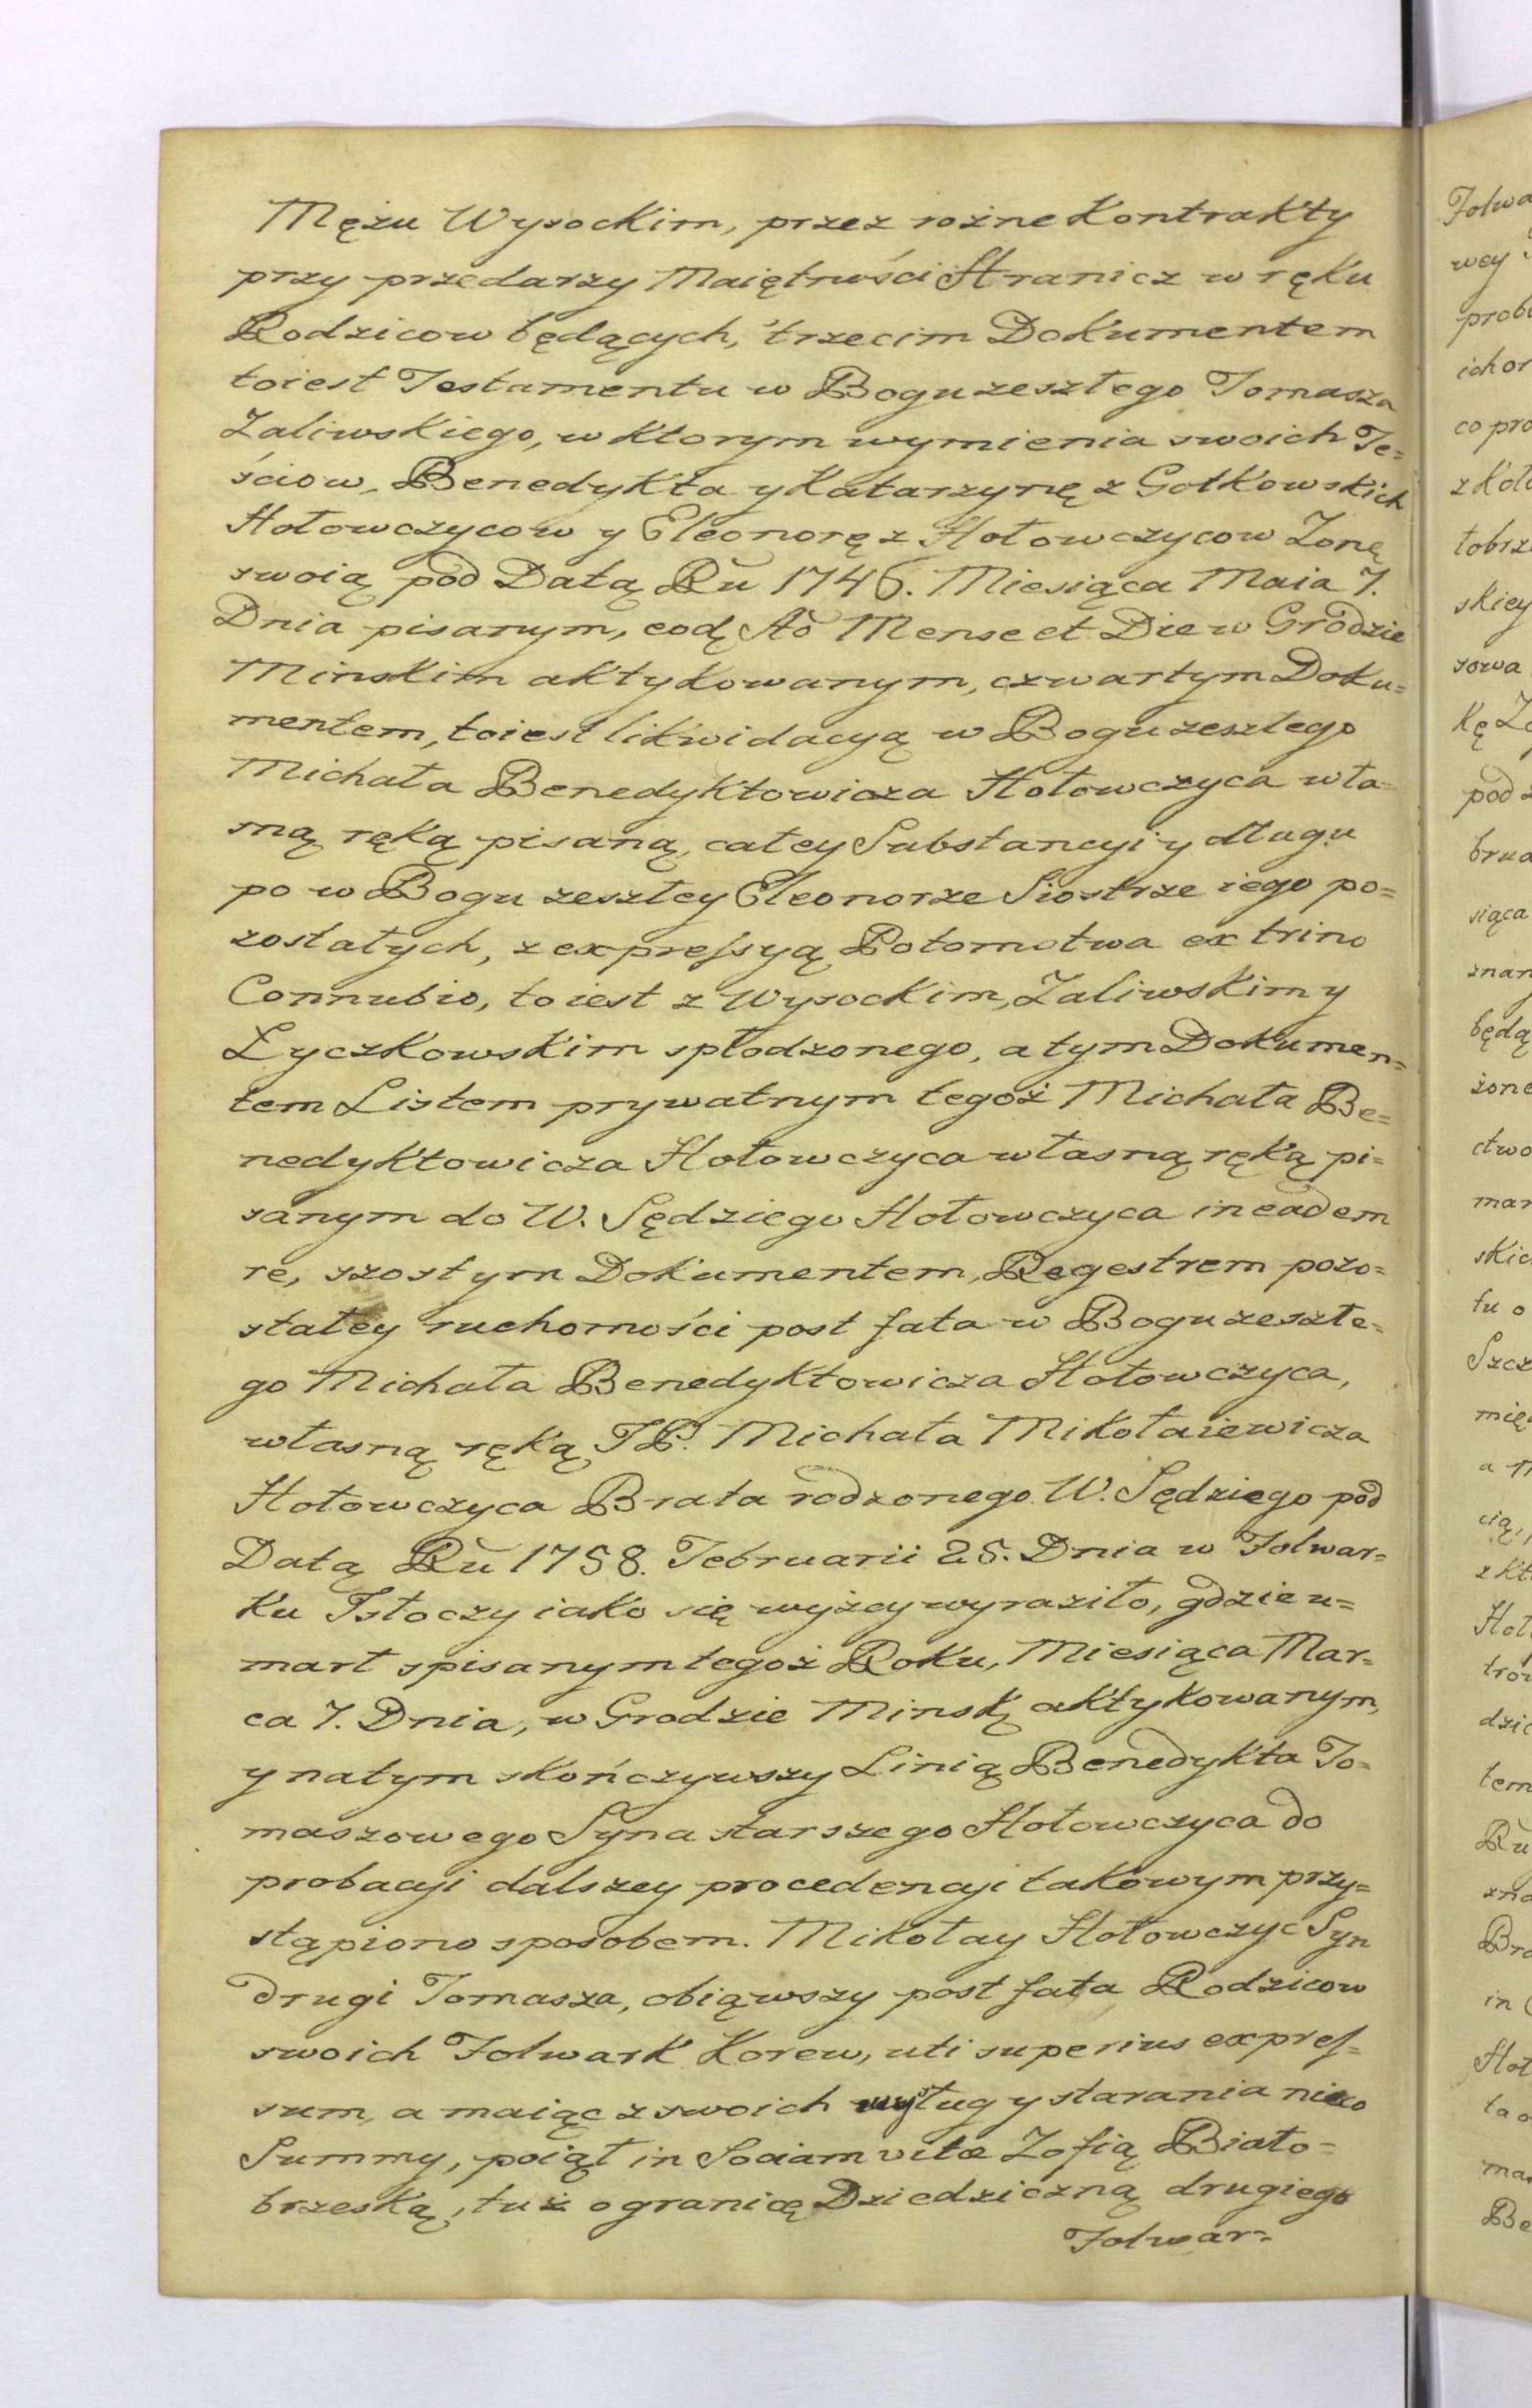 Mężu Wysockim, przez rożne Kontrakty
przy przedarzy Maiętności Hranicz w ręku
Rodzicow będących, trzecim Dokumentem
toiest Testamentu w Bogu zeszłego Tomasza
Zaliwskiego, w ktorym wymienia swoich Te=
ściow, Benedykta y Katarzynę z Gołkowskich
Hołowczycow y Eleonorę z Hołowczycow Zonę
swoią pod Datą Ru 1746. Miesiąca Maia 7.
Dnia pisanym, eod Ao Mense et Die w Grodzie
Minskim aktykowanym, czwartym Doku=
mentem, toiest likwidacyą w Bogu zeszłego
Michała Benedyktowicza Hołowczyca wła=
sną ręką pisaną, całey Substancyi y długu
po w Bogu zeszłey Eleonorze Siostrze iego po=
zostałych, z expressyą Potomstwa ex trino
Connubio, to iest z Wysockim, Zaliwskim y
Łyczkowskim spłodzonego, a tym Dokumen=
tem Listem prywatnym tegoż Michała Be=
nedyktowicza Hołowczyca własną ręką pi=
sanym do W. Sędziego Hołowczyca in eadem
re, szostym Dokumentem, Regestrem pozo=
stałey ruchomości post fata w Bogu zeszłe=
go Michała Benedyktowicza Hołowczyca,
własną ręką JP. Michała Mikołaiewicza
Hołowczyca Brata rodzonego W. Sędziego pod
Datą Ru 1758. Februarii 25. Dnia w Folwar=
ku Istoczy iako się wyżey wyraziło, gdzie u=
marł spisanym tegoż Roku, Miesiąca Mar=
ca 7. Dnia, w Grodzie Minsk aktykowanym,
y natym skończywszy Linią Benedykta To=
maszowego Syna starszego Hołowczyca do
probacyi dalszey procedencyi takowym przy=
stąpiono sposobem. Mikołay Hołowczyc Syn
drugi Tomasza, obiąwszy post fata Rodzicow
swoich Folwark Korew, uti superius expres=
sum, a maiąc z swoich wysług y starania nieco
Summy, poiął in Sociam vitæ Zofią Biało=
brzeską, tuż o granicę Dziedziczną drugiego
Folwar=
Folwa
wey
prob
ichor
co pro
z Koł
łobrz
skiey
sowa
kę Z
pod
brua
siąca
znan
będą
żone
ctwo
mar
skic
tu o
Szcz
mię
cią,
z kt
Hoł
tro
dzic
tem
Ru
zna
Bra
in
Hoł
ta o
ma
Be